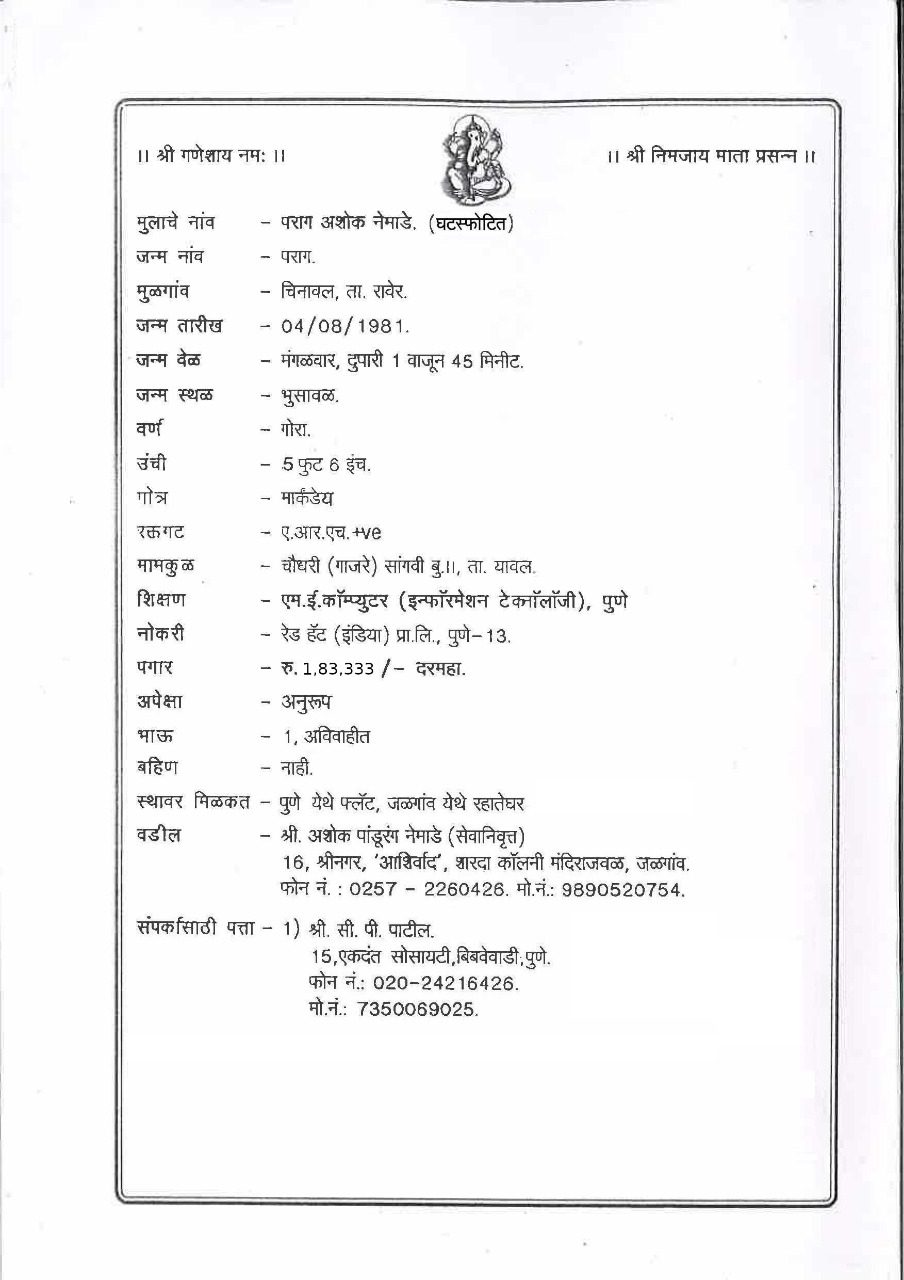 ।। श्री गणेशाय नमः ।।
।। श्री निमजाय माता प्रसन्न ।।
मुलाचे नांव – पराग अशोक नेमाडे. (घटस्फोटित)
जन्म नांव – पराग.
मुळगांव – चिनावल, ता. रावेर.
जन्म तारीख – 04/08/1981.
जन्म वेळ – मंगळवार, दुपारी 1 वाजून 45 मिनीट.
जन्म स्थळ – भुसावळ.
वर्ण – गोरा.
उंची – 5 फुट 6 इंच.
गोत्र – मार्कंडेय
रक्तगट – ए.आर.एच.+ve
मामकुळ – चौधरी (गाजरे) सांगवी बु.।।, ता. यावल.
शिक्षण – एम.ई.कॉम्प्युटर (इन्फॉरमेशन टेक्नॉलॉजी), पुणे
नोकरी – रेड हॅट (इंडिया) प्रा.लि., पुणे–13.
पगार – रु. 1,83,333 /– दरमहा.
अपेक्षा – अनुरूप
भाऊ – 1, अविवाहीत
बहिण – नाही.
स्थावर मिळकत – पुणे येथे फ्लॅट, जळगांव येथे रहातेघर
वडील – श्री. अशोक पांडूरंग नेमाडे (सेवानिवृत्त)
16, श्रीनगर, 'आशिर्वाद', शारदा कॉलनी मंदिराजवळ, जळगांव.
फोन नं. : 0257 – 2260426. मो.नं.: 9890520754.
संपर्कासाठी पत्ता – 1) श्री. सी. पी. पाटील.
15,एकदंत सोसायटी,बिबवेवाडी,पुणे.
फोन नं.: 020–24216426.
मो.नं.: 7350069025.